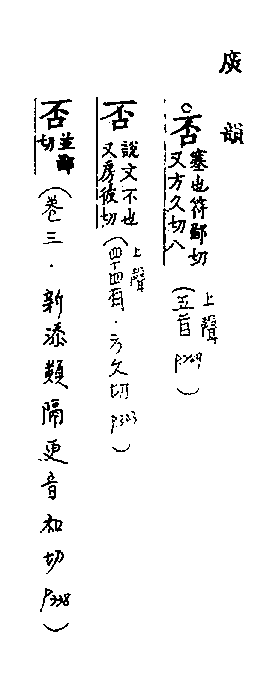 廣韻
否 塞也符鄙切
又方久切八
上聲
(五旨 p.249)
否 說文不也
又房彼切
上聲
(四十四有.方久切 p323)
否 並鄙
切
(卷三.新添類隔更音和切 p338)